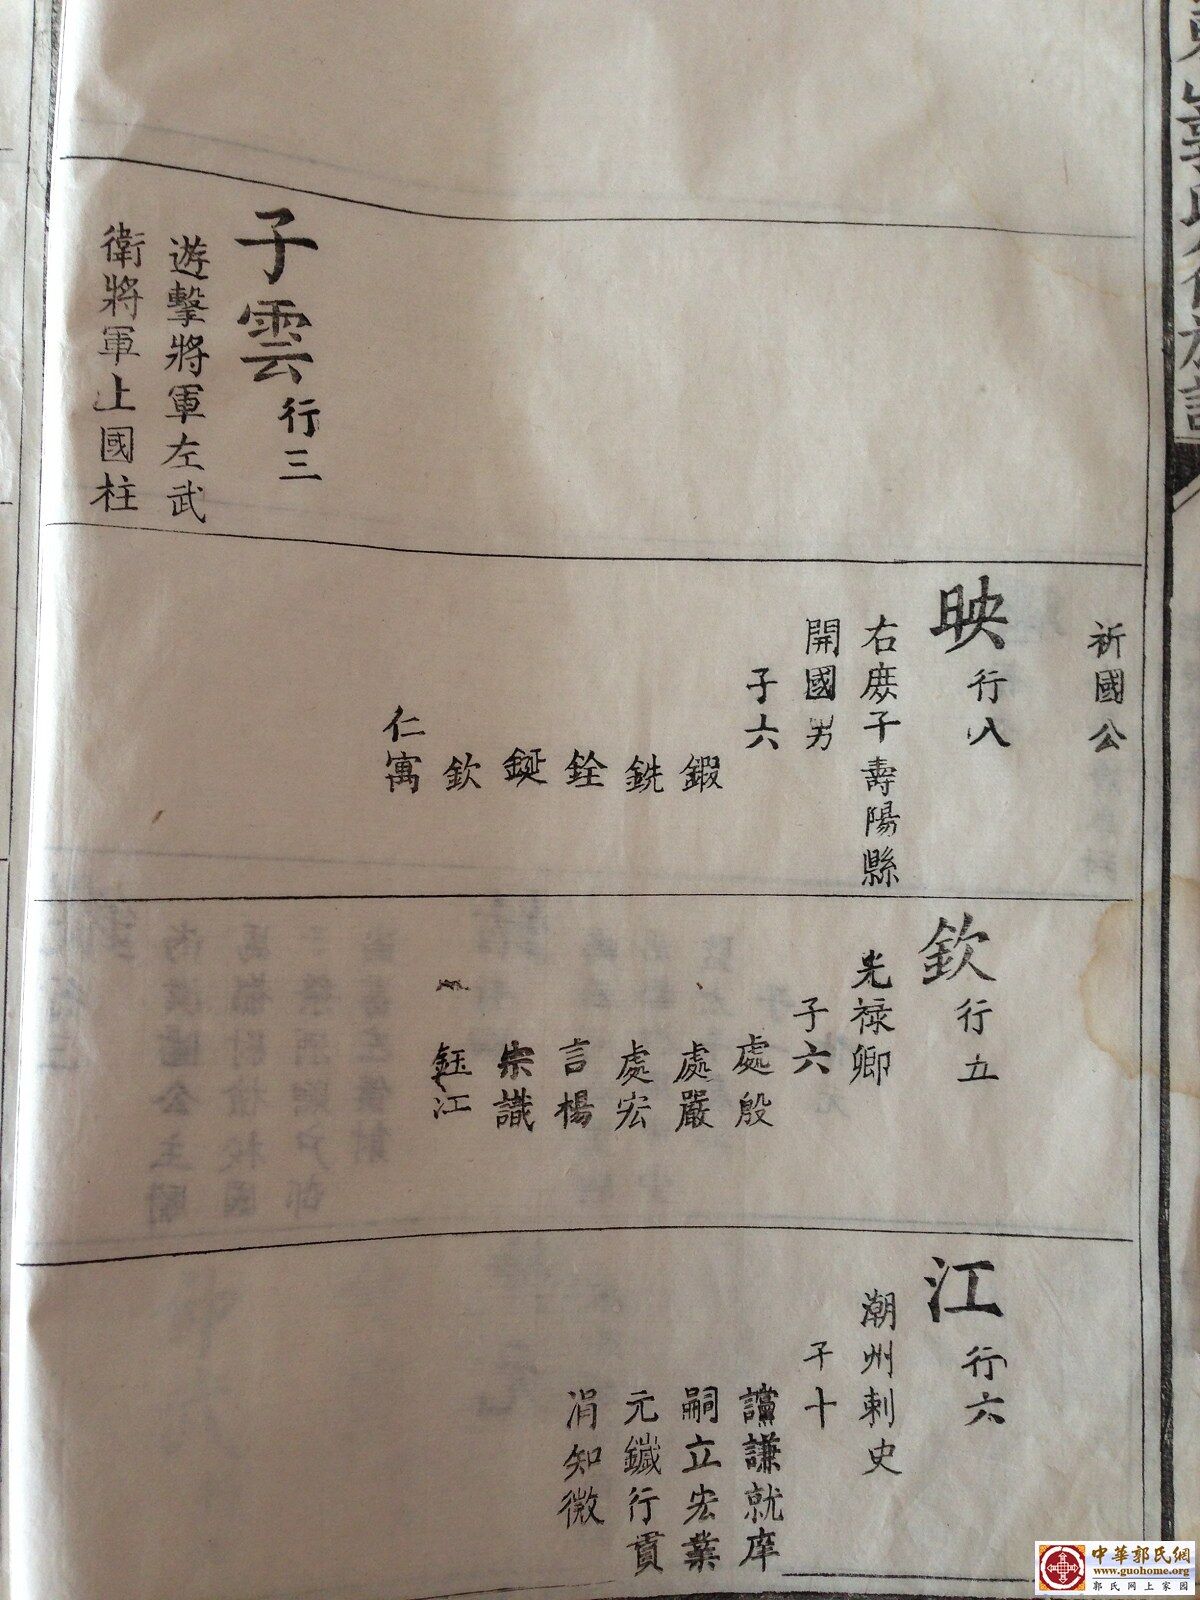 子雲行三
遊擊將軍左武
衛將軍上國柱
祈國公
映行八
右庶子壽陽縣
開國男
子六
鍜
銑
銓
鋋
欽
仁寓
欽行五
光禄卿
子六
處殷
處嚴
處宏
言楊
宗識
鈺江
江行六
潮州刺史
子十
讜謙就庠
嗣立宏業
元鍼行貫
涓知微
中華郭氏網
www.guohome.org
郭氏网上家园